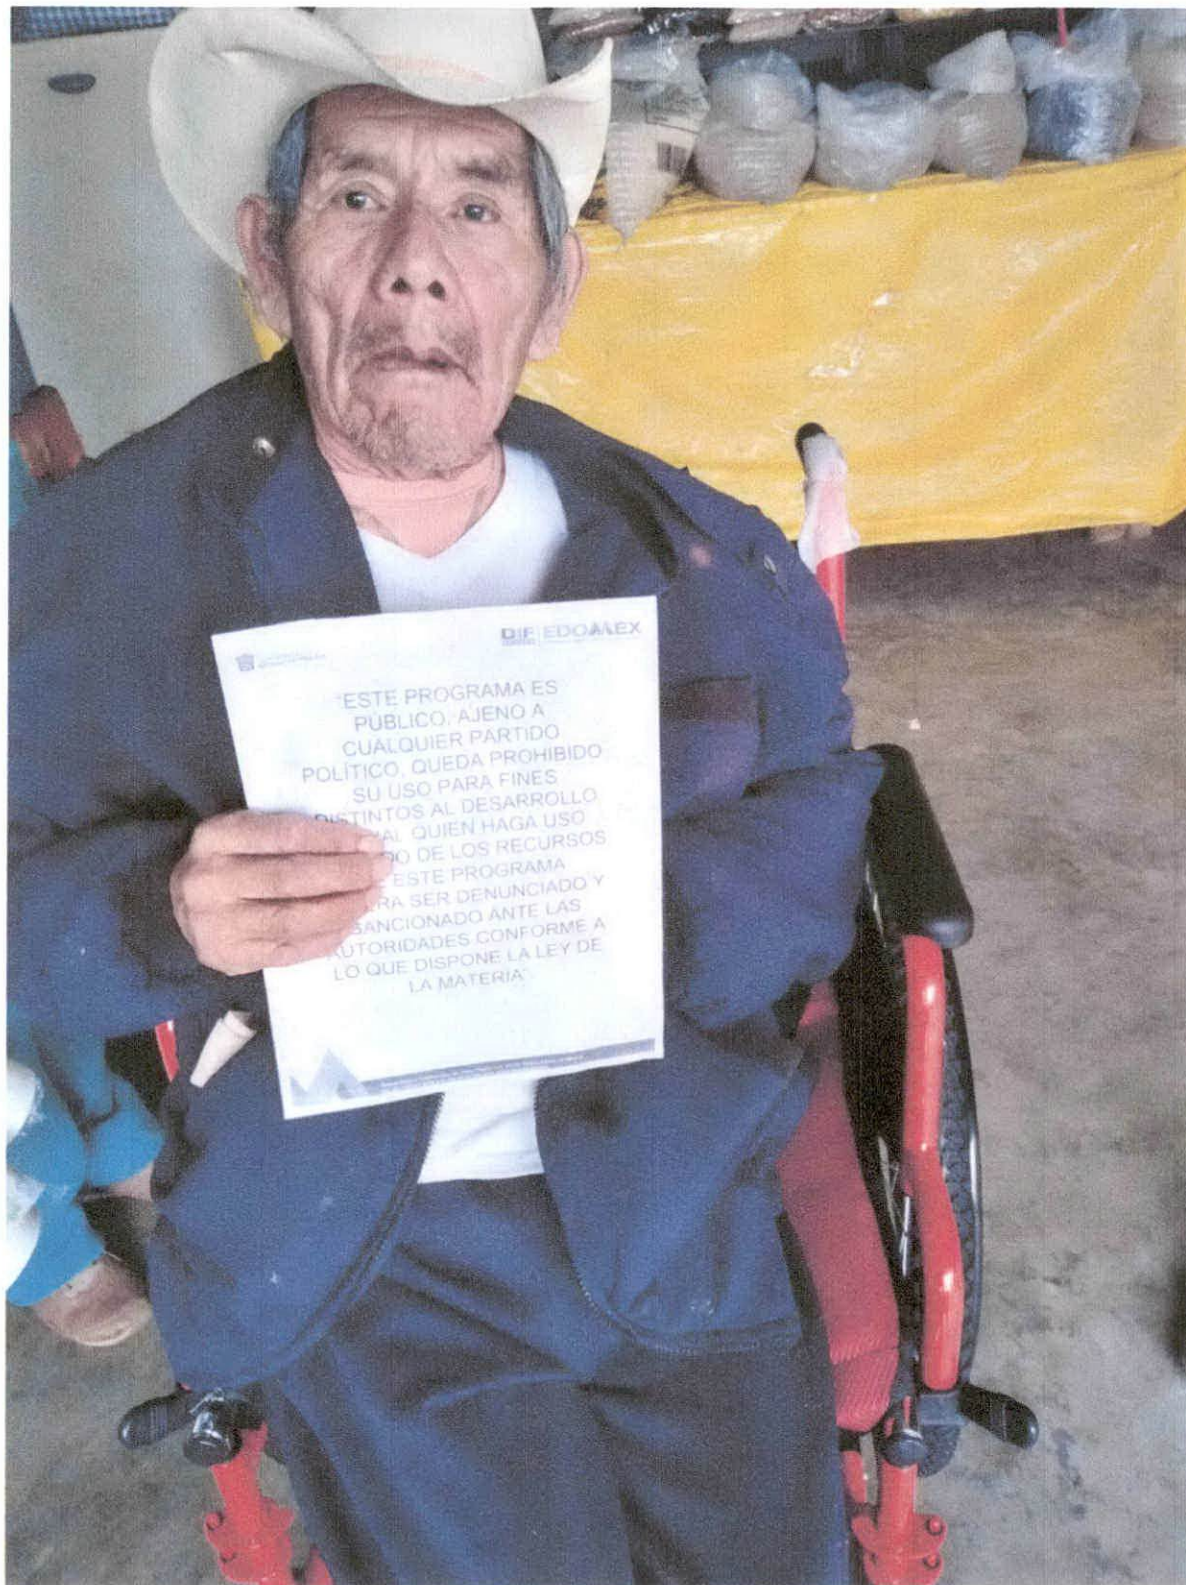 DIF EDOMEX
"ESTE PROGRAMA ES
PÚBLICO, AJENO A
CUALQUIER PARTIDO
POLÍTICO, QUEDA PROHIBIDO
SU USO PARA FINES
DISTINTOS AL DESARROLLO
QUIEN HAGA USO
DE LOS RECURSOS
ESTE PROGRAMA
SER DENUNCIADO Y
SANCIONADO ANTE LAS
AUTORIDADES CONFORME A
LO QUE DISPONE LA LEY DE
LA MATERIA"